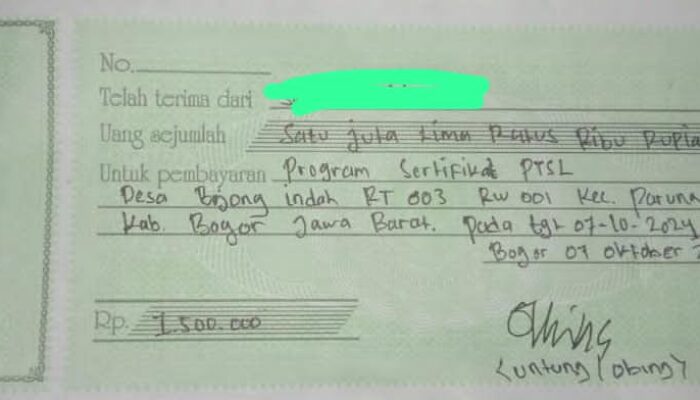 No.
Telah terima dari
Uang sejumlah Satu juta Lima Ratus Ribu Rupia
Untuk pembayaran Program Sertifikat PTSL
Desa Bojong indah RT 003 RW 001 Kec. Paruna
Kab. Bogor Jawa Barat. Pada tgl 07-10-2024
Bogor 07 Oktober 2
Rp. 1.500.000
(untung / obing)